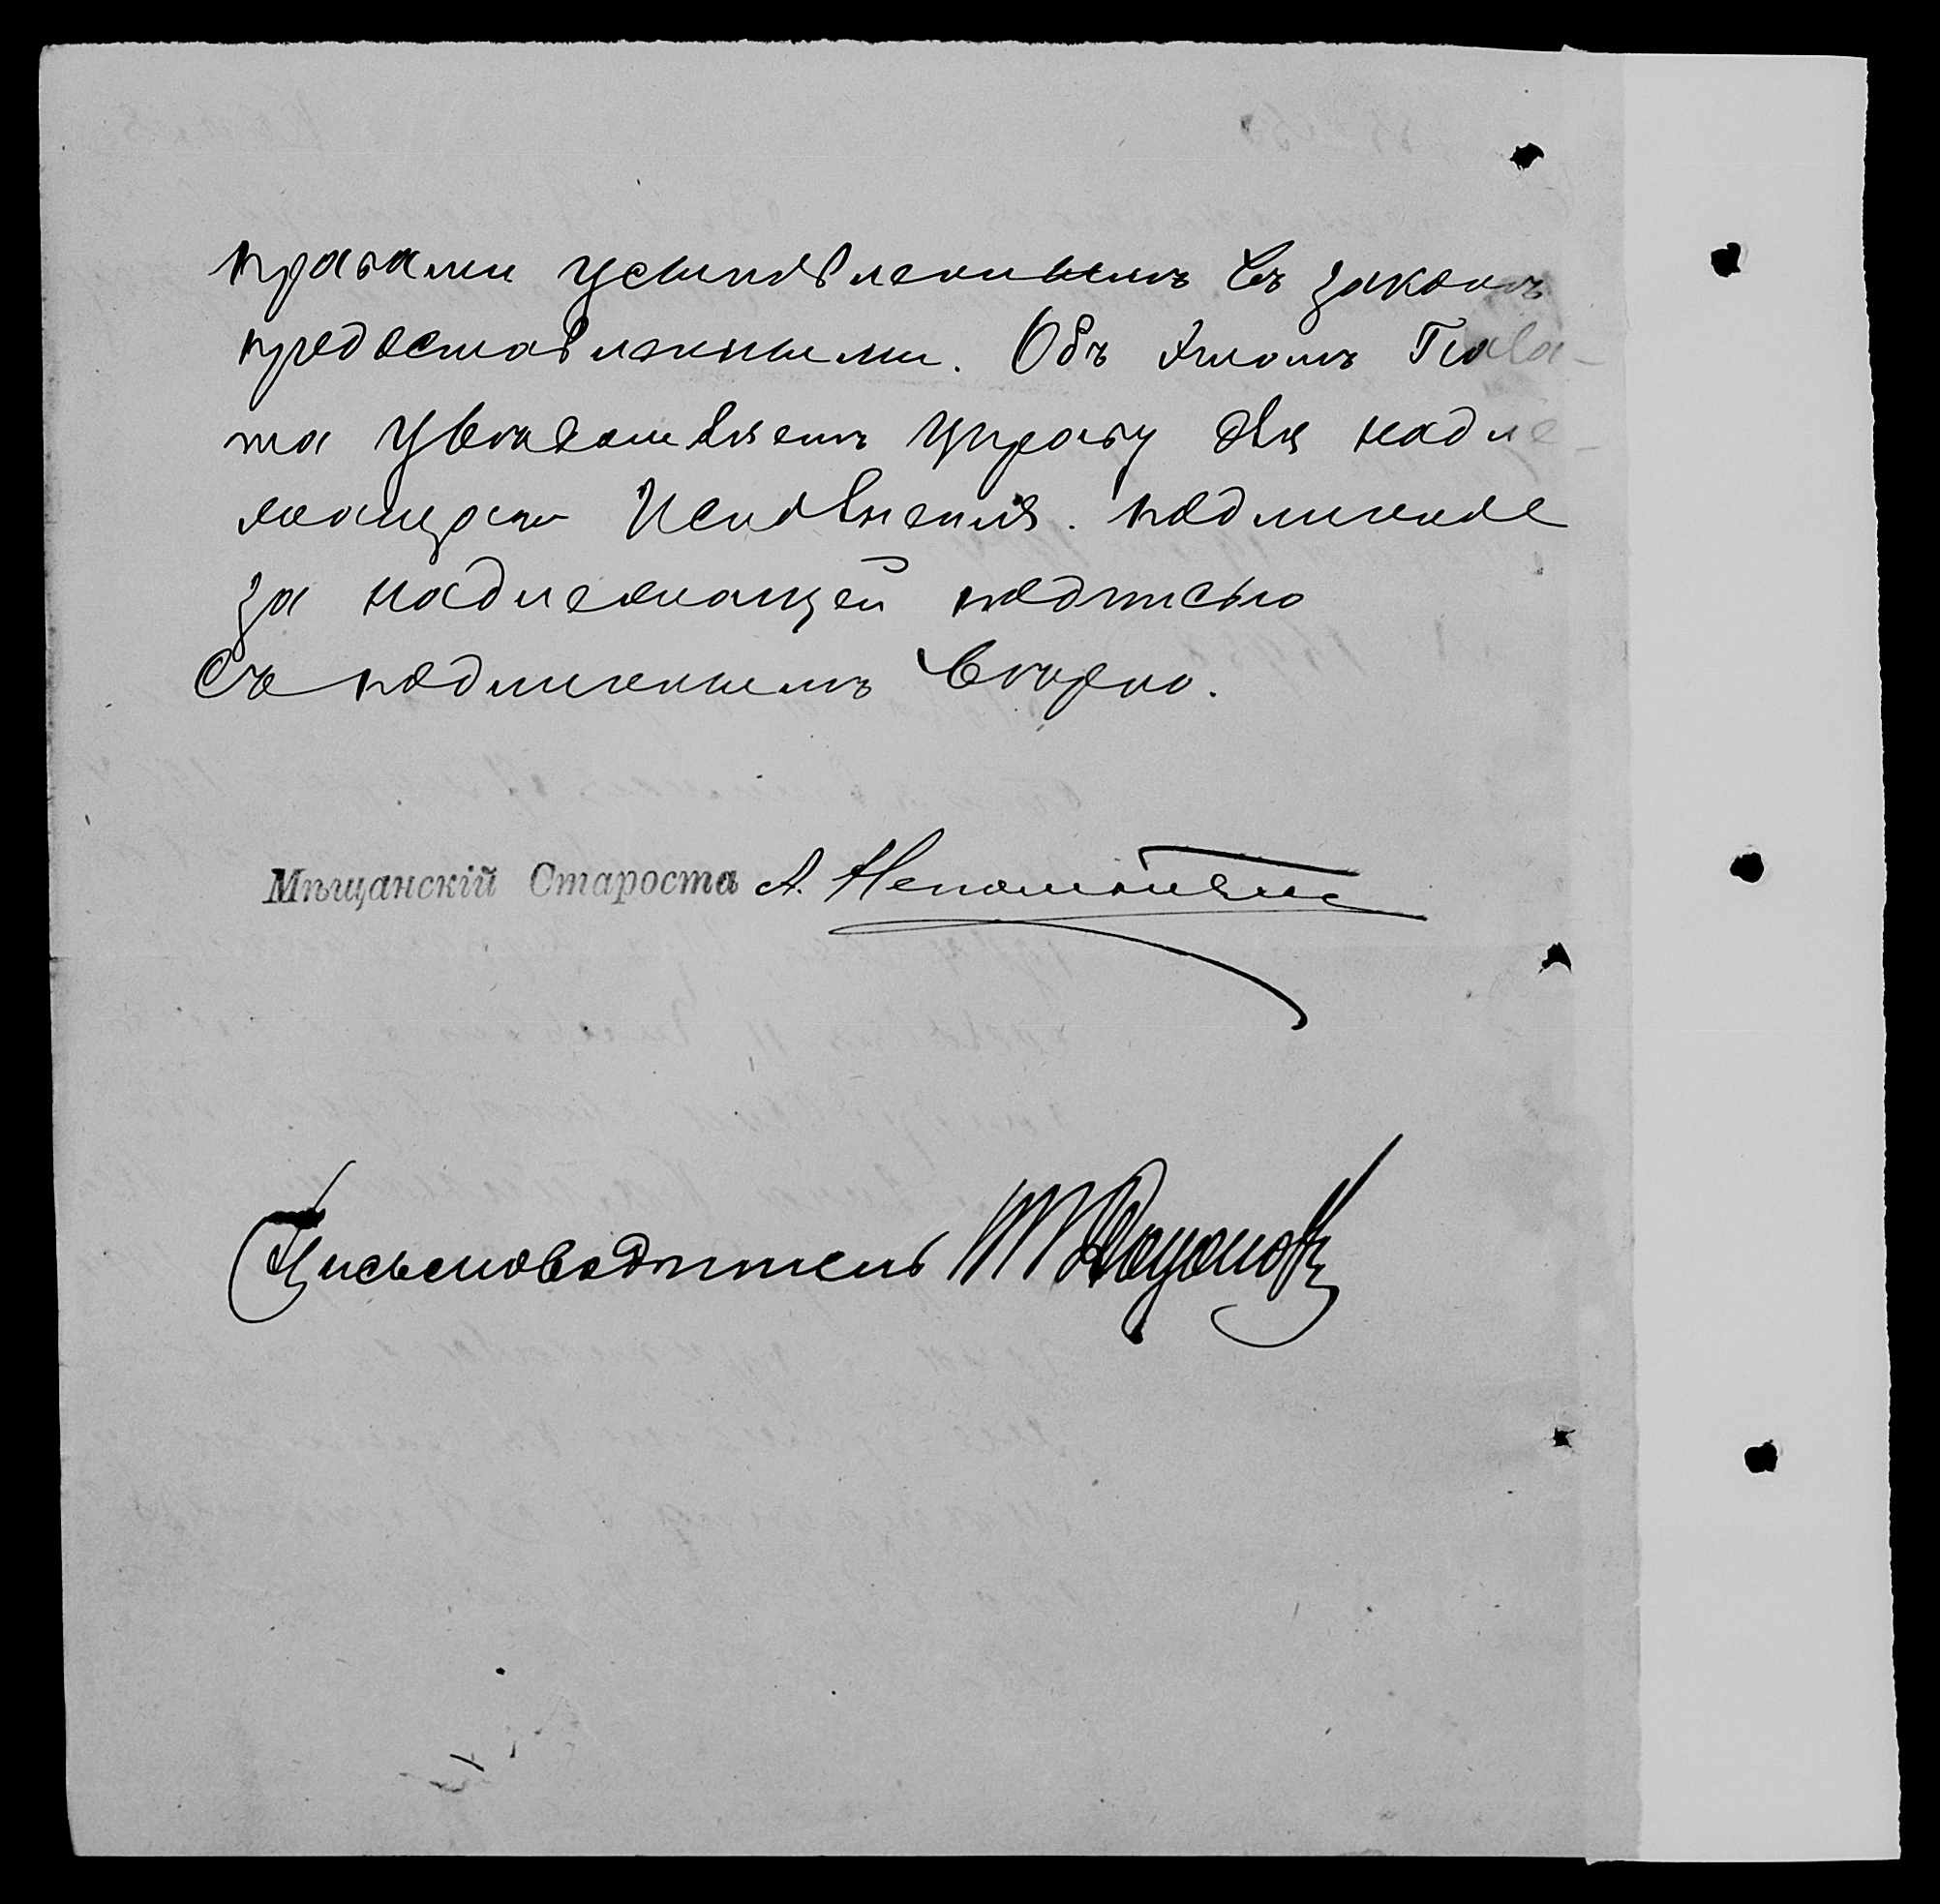 правами усыновленнымъ въ законѣ
предоставленными. Объ этомъ Пала-
та увѣдомляетъ управу для надле-
жащаго Исполненія. подлинное
за надлежащей подписью
Съ подлиннымъ вѣрно.
Мѣщанскій Староста А.
Письмоводитель